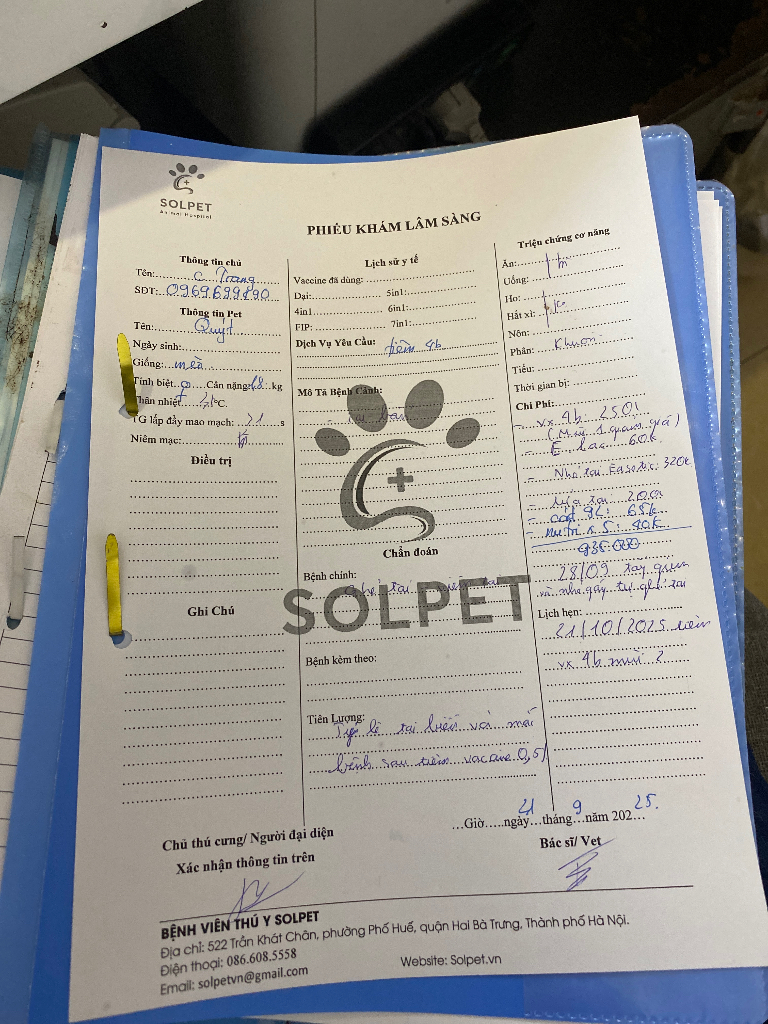 SOLPET
Animal Hospital
PHIẾU KHÁM LÂM SÀNG
Thông tin chủ
Tên: c Trang
SĐT: 0969699890
Thông tin Pet
Tên: Quýt
Ngày sinh:
Giống: mèo
Tính biệt ♀ Cân nặng: kg
Thân nhiệt °C.
TG lấp đầy mao mạch: 21 s
Niêm mạc:
Điều trị
Ghi Chú
Lịch sử y tế
Vaccine đã dùng:
Dại: 5in1:
4in1 6in1:
FIP: 7in1:
Dịch Vụ Yêu Cầu: tiêm 4b
Mô Tả Bệnh Cảnh:
tai bẩn
SOLPET
Chẩn đoán
Bệnh chính: tai
Bệnh kèm theo:
Tiên Lượng:
Tỷ lệ tai biến và mắc
bệnh sau tiêm vacxine 0,5%
Triệu chứng cơ năng
Ăn:
Uống:
Ho:
Hắt xì:
Nôn:
Phân: khuôn
Tiểu:
Thời gian bị:
Chi Phí:
- vx 4b 250
(Mũi 1 giảm giá)
- 60k
- Nhỏ tai Easotic: 320k
- tai 200
- 65k
x 5: 40k
935.000
28/09 quen
tai
Lịch hẹn:
21/10/2025 tiêm
vx 4b mũi 2
…Giờ…..ngày 21 tháng 9 năm 2025
Chủ thú cưng/ Người đại diện
Xác nhận thông tin trên
Bác sĩ/ Vet
BỆNH VIỆN THÚ Y SOLPET
Địa chỉ: 522 Trần Khát Chân, phường Phố Huế, quận Hai Bà Trưng, Thành phố Hà Nội.
Điện thoại: 086.608.5558
Email: solpetvn@gmail.com Website: Solpet.vn